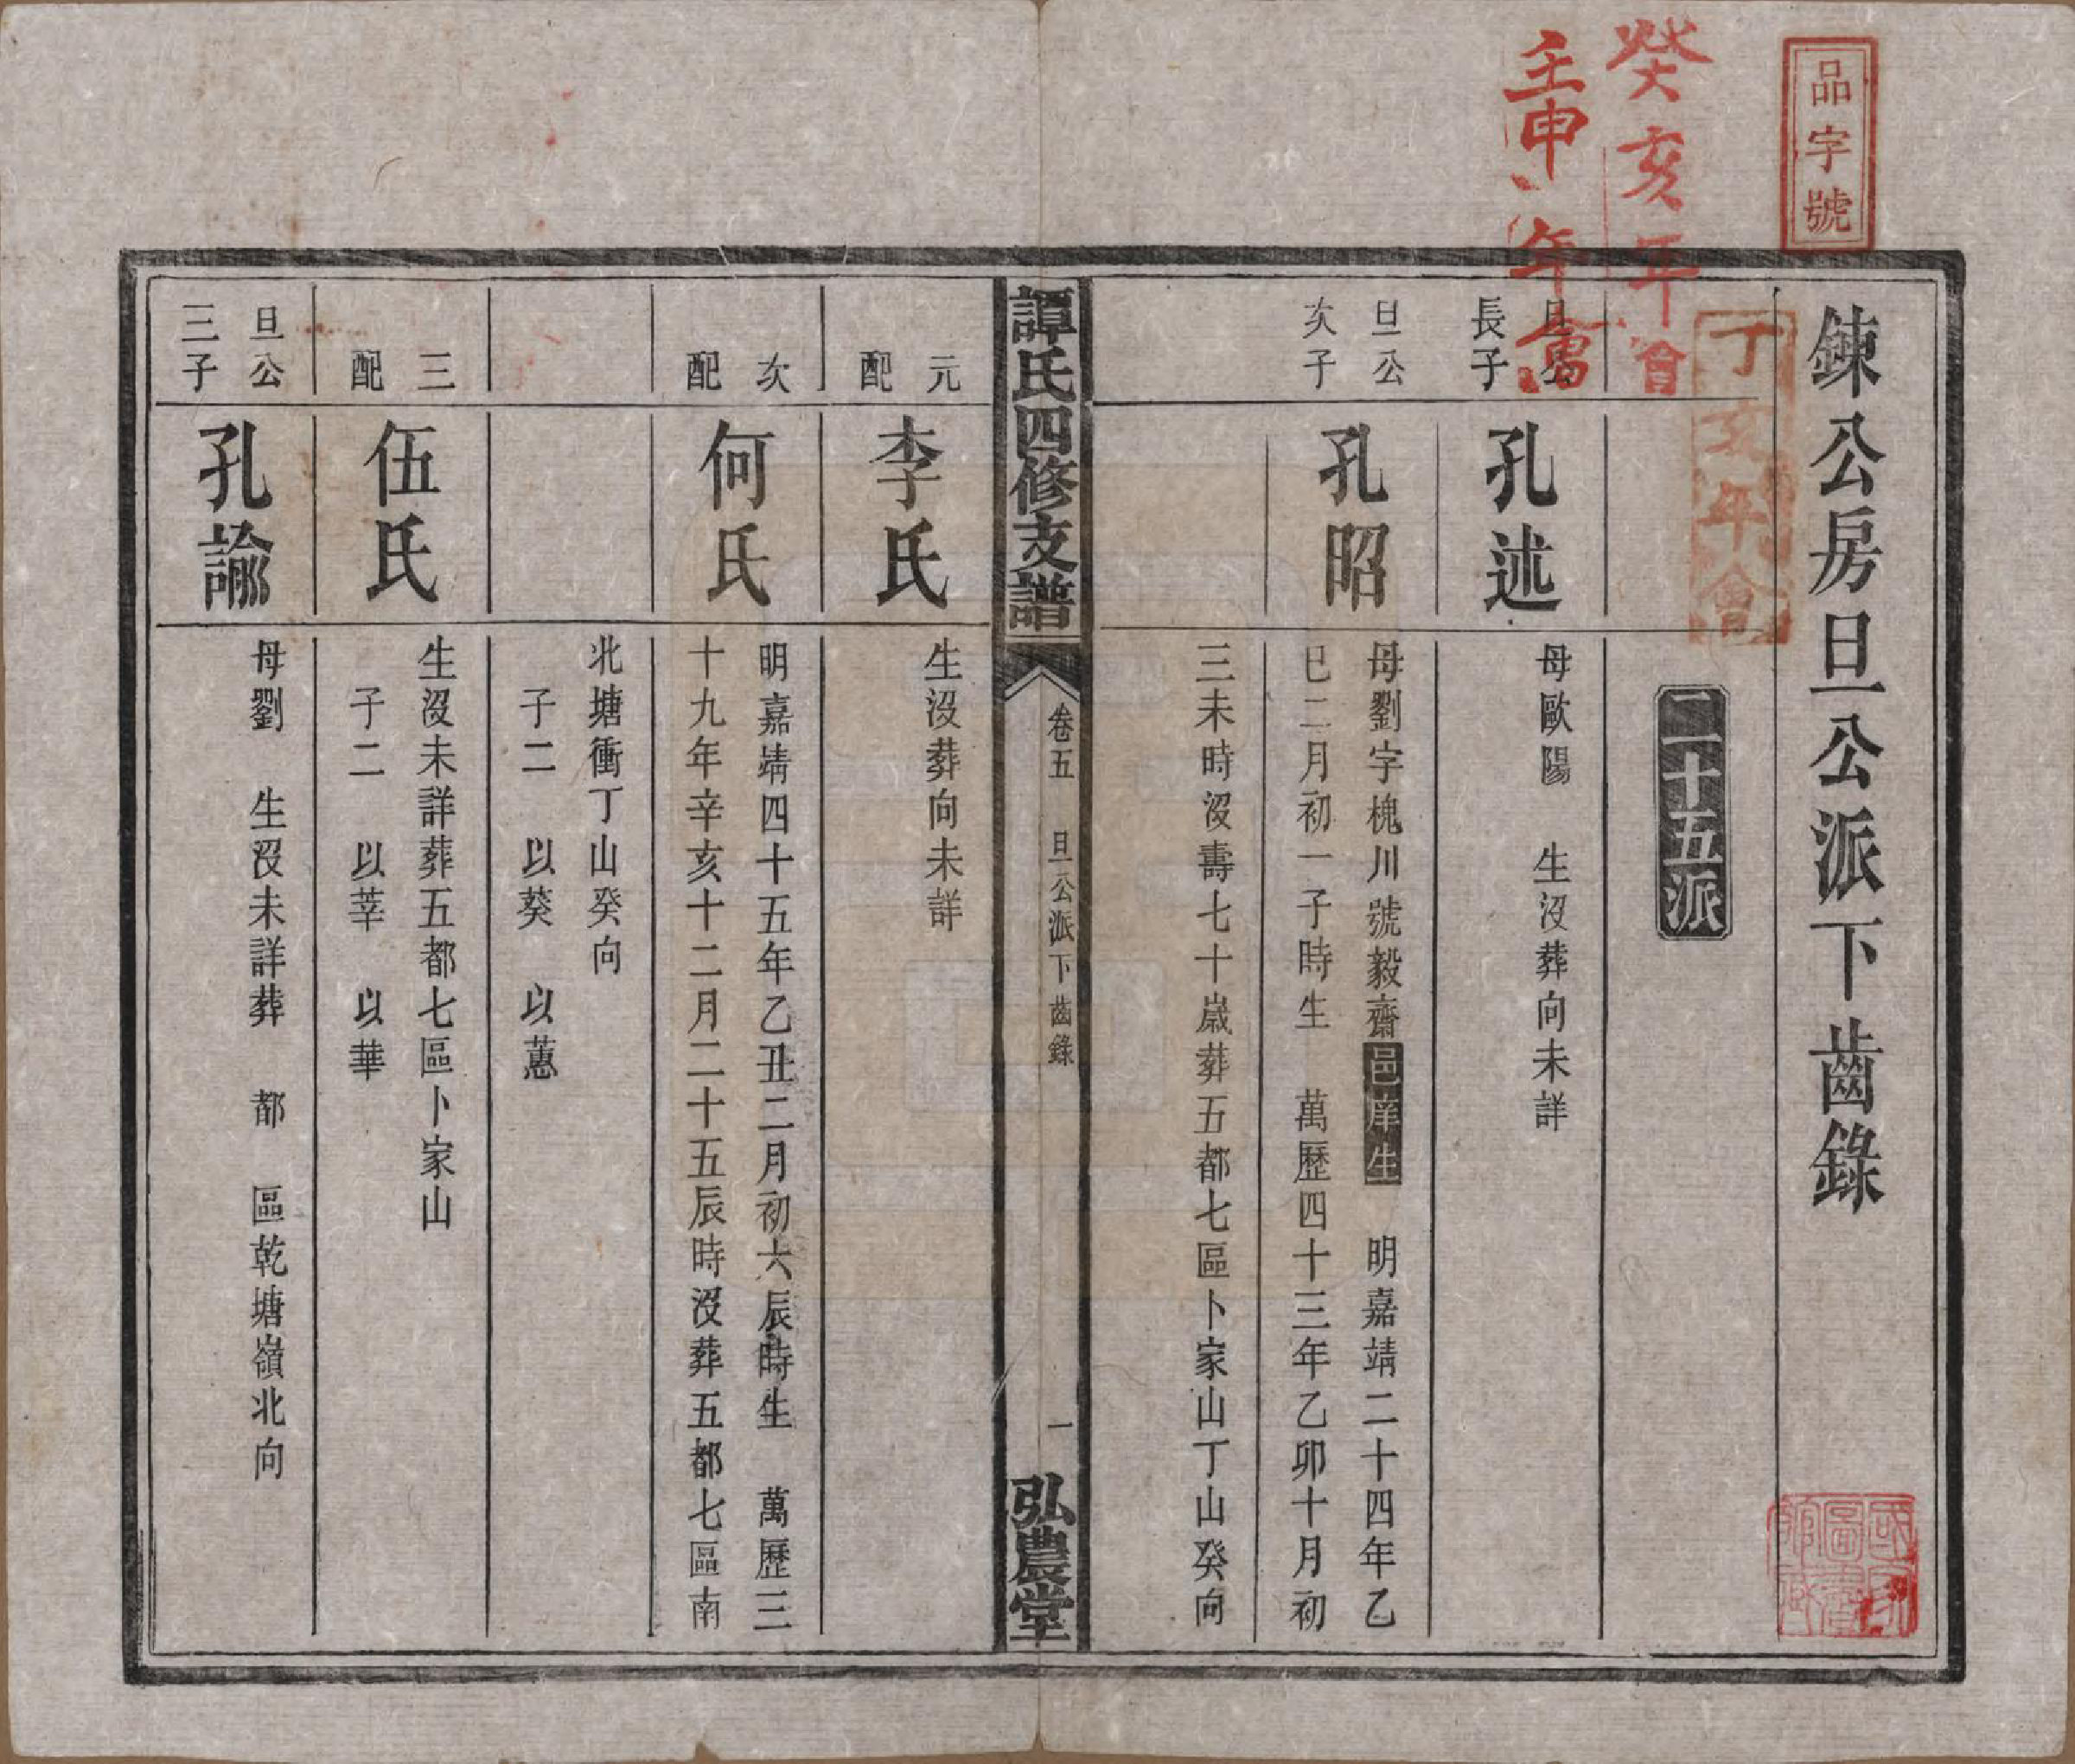 品字號
癸亥年會
壬申年會
丁亥年會
鍊公房旦公派下齒錄
二十五派
旦公
長子
孔述
母歐陽　生沒葬向未詳
旦公
次子
孔昭
母劉字槐川號毅齋邑庠生　明嘉靖二十四年乙
巳二月初一子時生　萬歷四十三年乙卯十月初
三未時沒壽七十歲葬五都七區卜家山丁山癸向
譚氏四修支譜
卷五　旦公派下齒錄
一
弘農堂
元
配
李氏
生沒葬向未詳
次
配
何氏
明嘉靖四十五年乙丑二月初六辰時生　萬歷三
十九年辛亥十二月二十五辰時沒葬五都七區南
北塘衝丁山癸向
子二　以葵　以蕙
三
配
伍氏
生沒未詳葬五都七區卜家山
子二　以莘　以華
旦公
三子
孔諭
母劉　生沒未詳葬　都　區乾塘嶺北向